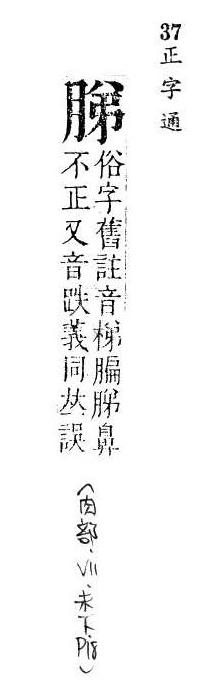 37
正字通
䏲
俗字舊註音梯䐔䏲鼻
不正又音跌義同𠀤誤
(肉部、VII、未下P18)